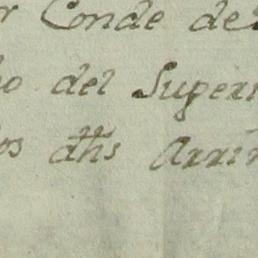 r Conde de
o del Superi
os dhs Arri